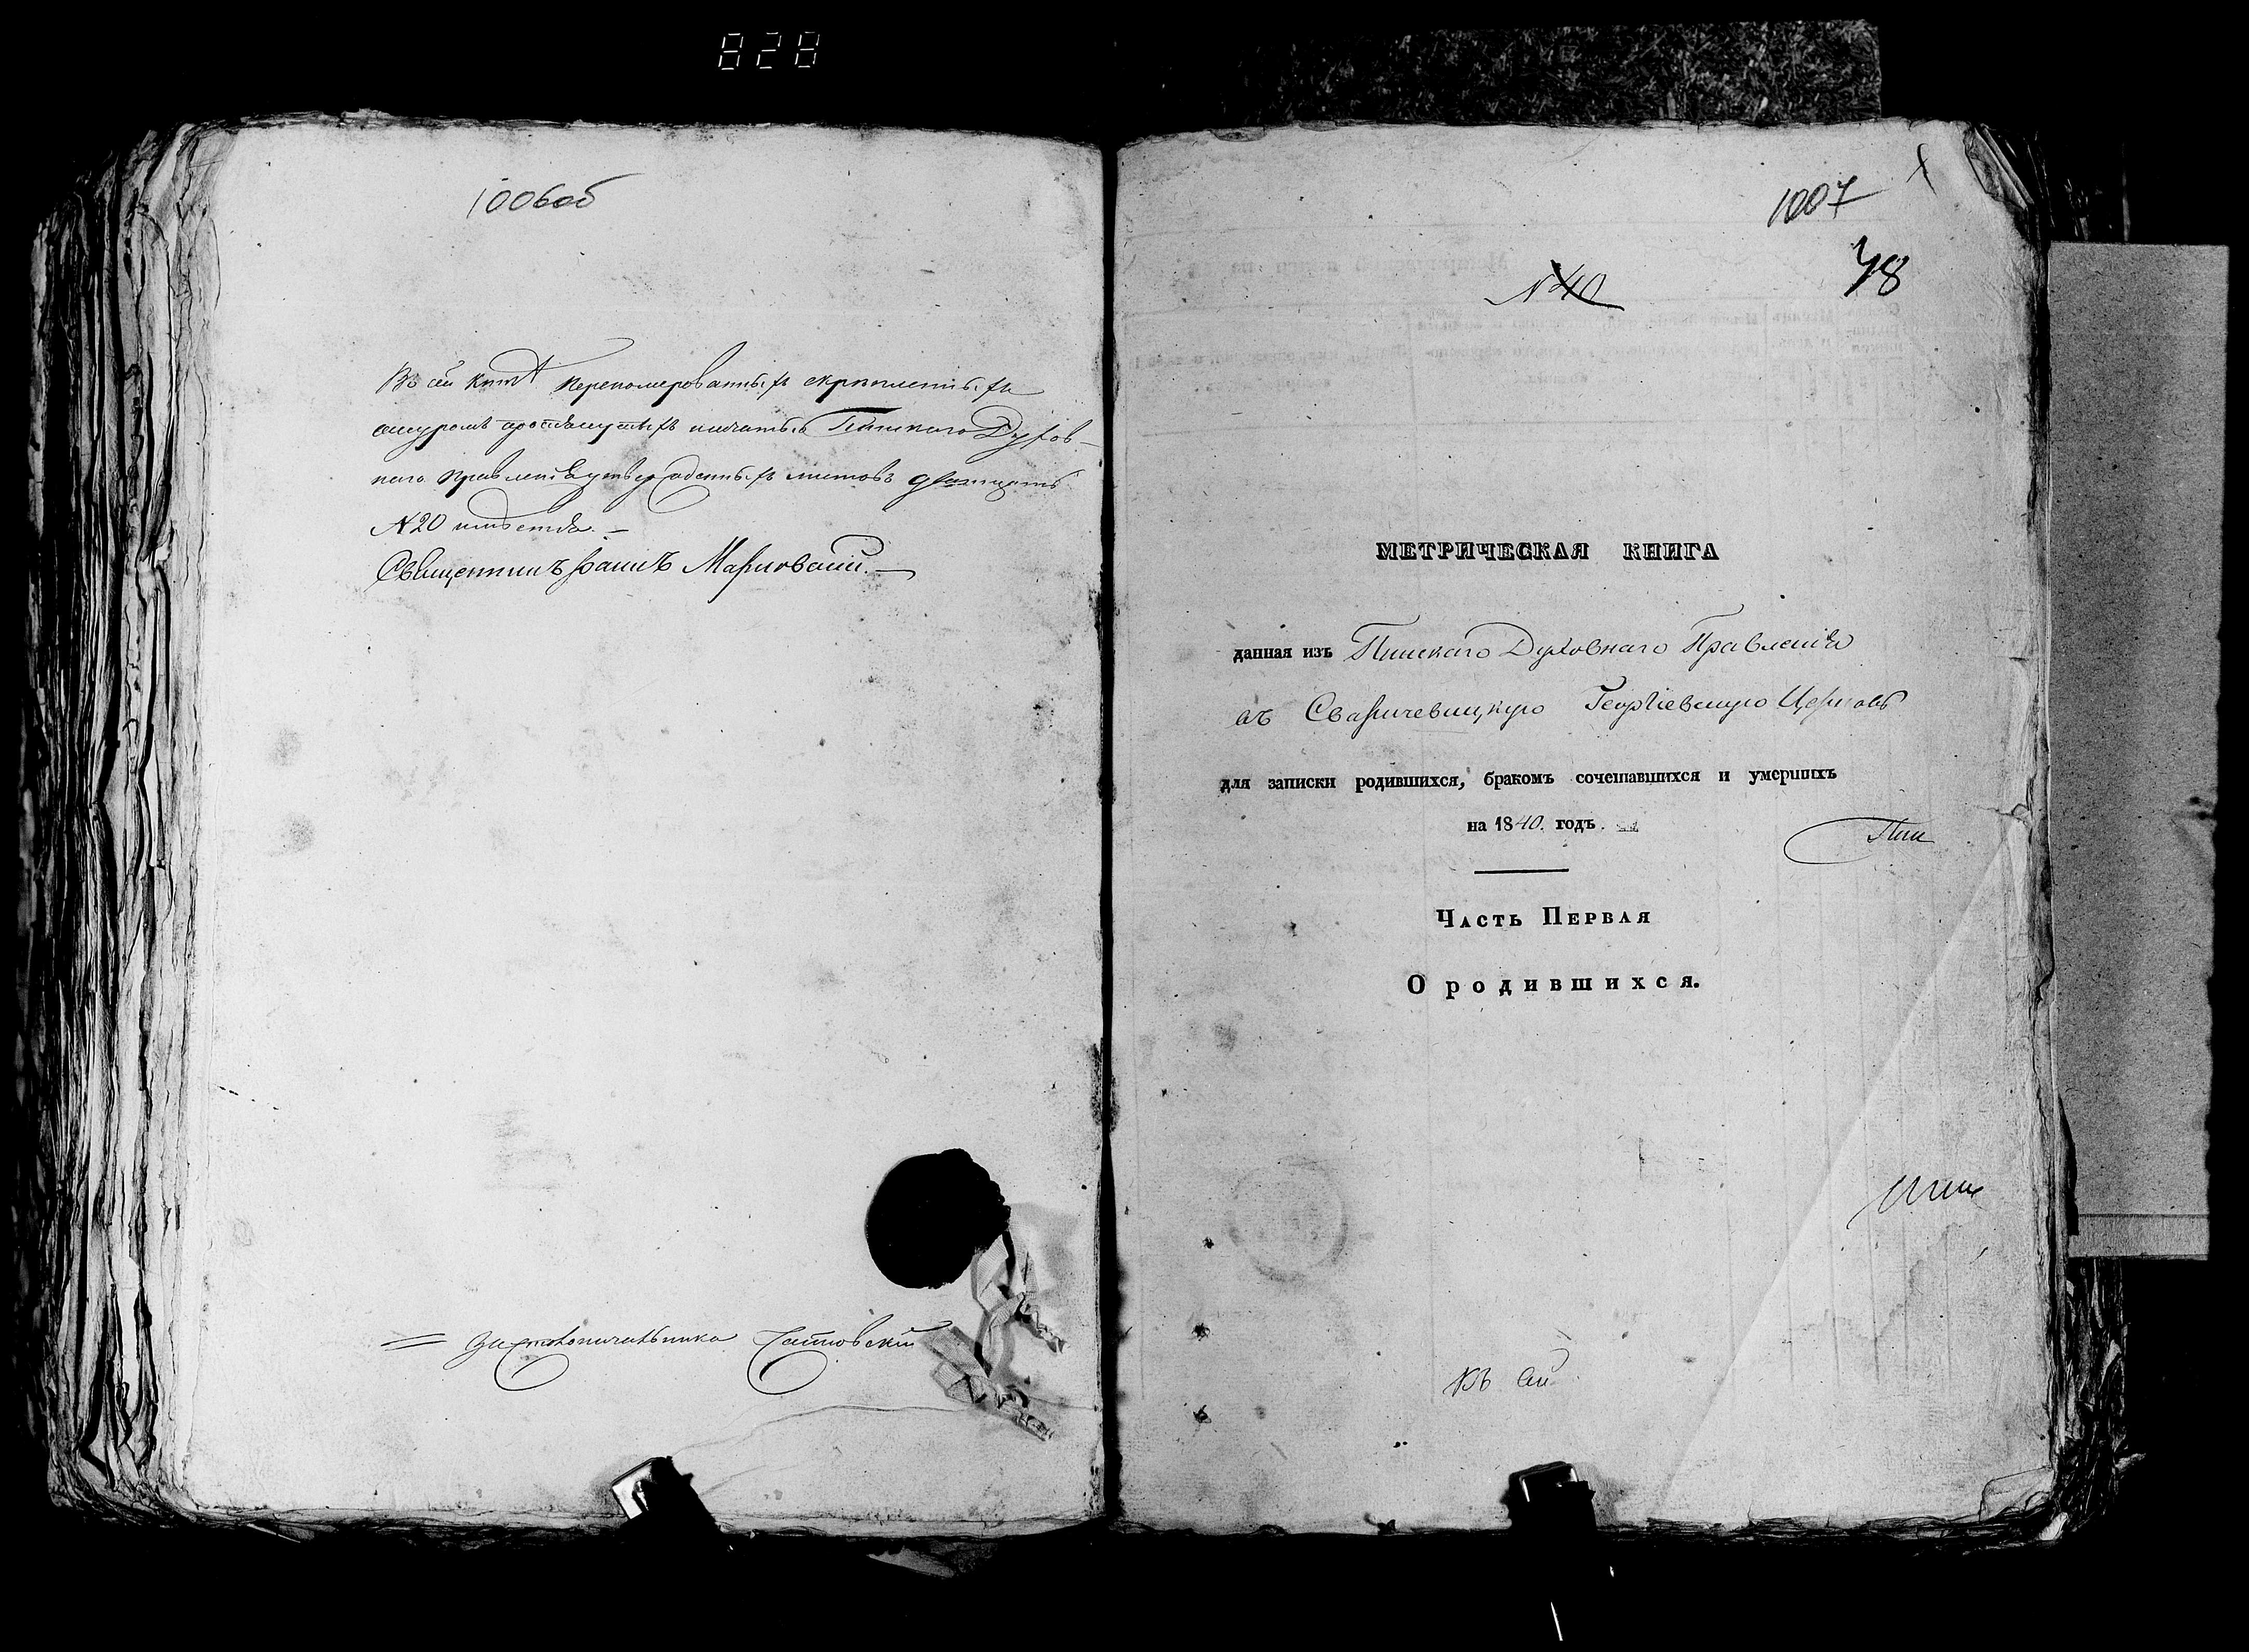 828
1006об
Въ сей книгѣ переномерованныхъ скрѣпленныхъ
шнуромъ протянутыхъ печатью Пинскаго Духов-
наго Правленія утвержденныхъ листовъ двадцать
№ 20 имѣется. —
Священникъ Марковскій. —
= За столоначальника
1007
78
№ 40
МЕТРИЧЕСКАЯ КНИГА
данная изъ Пинскаго Духовнаго Правленія
въ Сваричевицкую Георгіевскую Церковь
для записки родившихся, бракомъ сочетавшихся и умершихъ
на 1840. годъ.
Пин
Часть Первая
О родившихся.
Къ сей